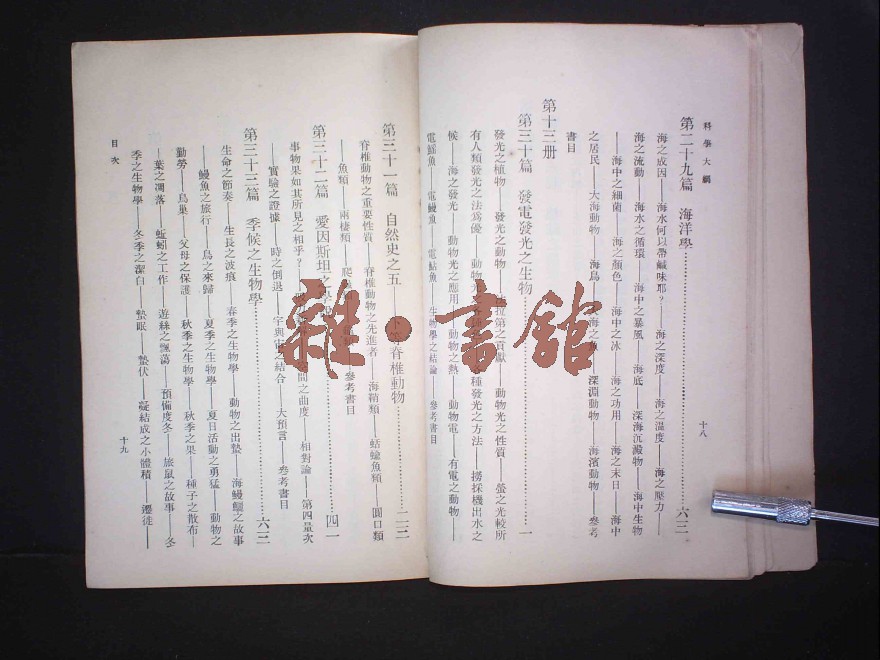 科學大綱
十八
第二十九篇 海洋學……六三
海之成因——海水何以帶鹹味耶?——海之深度——海之溫度——海之壓力——
海之流動——海水之循環——海中之暴風——海底——深海沉澱物——海中生物
——海中之細菌——海之顏色——海中之冰——海之功用——海之末日——海中
之居民——大海動物——海鳥——深淵動物——海濱動物——參考
書目
第十三册
第三十篇 發電發光之生物……一
發光之植物——發光之動物——拉第之貢獻——動物光之性質——螢之光較所
有人類發光之法爲優——動物——種發光之方法——撈採機出水之
候——海之發光——動物光之應用——動物之熱——動物電——有電之動物——
電鰩魚——電鰻魚——電鮎魚——生物學之結論——參考書目
第三十一篇 自然史之五——下等脊椎動物……二三
脊椎動物之重要性質——脊椎動物之先進者——海鞘類——蛞蝓魚類——圓口類
——魚類——兩棲類——爬——參考書目
第三十二篇 愛因斯坦之學……四一
事物果如其所見之相乎?——間之曲度——相對論——第四量次
——實驗之證據——時之倒退——宇與宙之結合——大預言——參考書目
第三十三篇 季候之生物學……六三
生命之節奏——生長之波痕——春季之生物學——動物之出蟄——海鰻鱺之故事
——鰻魚之旅行——鳥之來歸——夏季之生物學——夏日活動之勇猛——動物之
勤勞——鳥巢——父母之保護——秋季之生物學——秋季之果——種子之散布——
——葉之凋落——蚯蚓之工作——遊絲之飄蕩——預備度冬——旅鼠之故事——冬
季之生物學——冬季之潔白——蟄眠——蟄伏——凝結成之小體積——遷徙——
目次
十九
雜·書舘